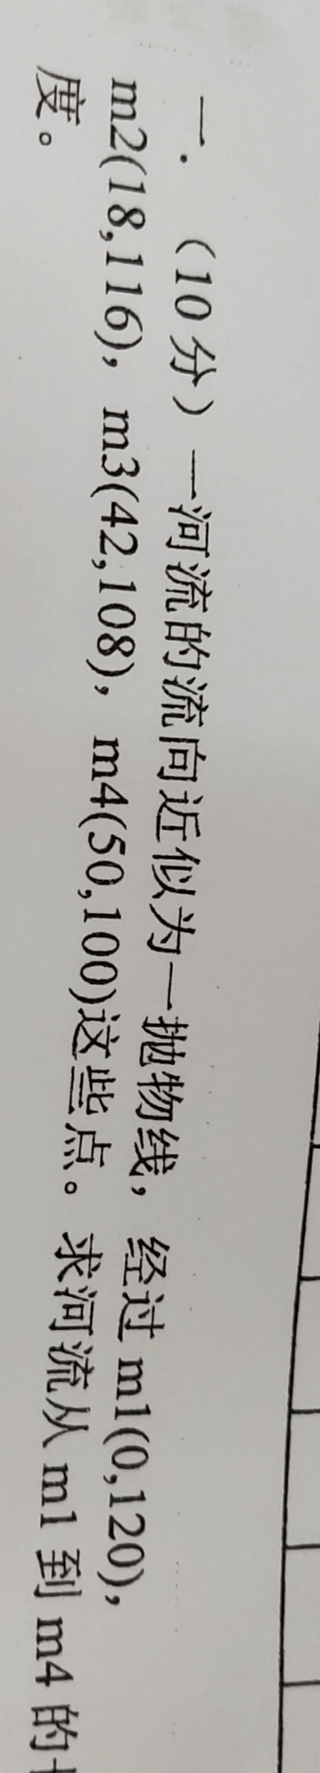 一. （10 分）一河流的流向近似为一抛物线，经过 m1(0,120),
m2(18,116)，m3(42,108)，m4(50,100)这些点。求河流从 m1 到 m4 的
度。